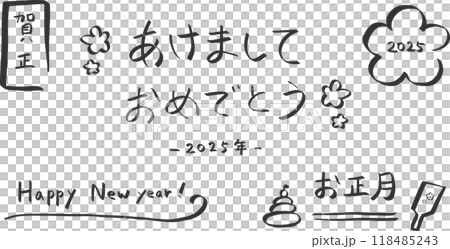 賀正
あけまして
おめでとう
2025
-2025年-
Happy New year!
お正月
118485243